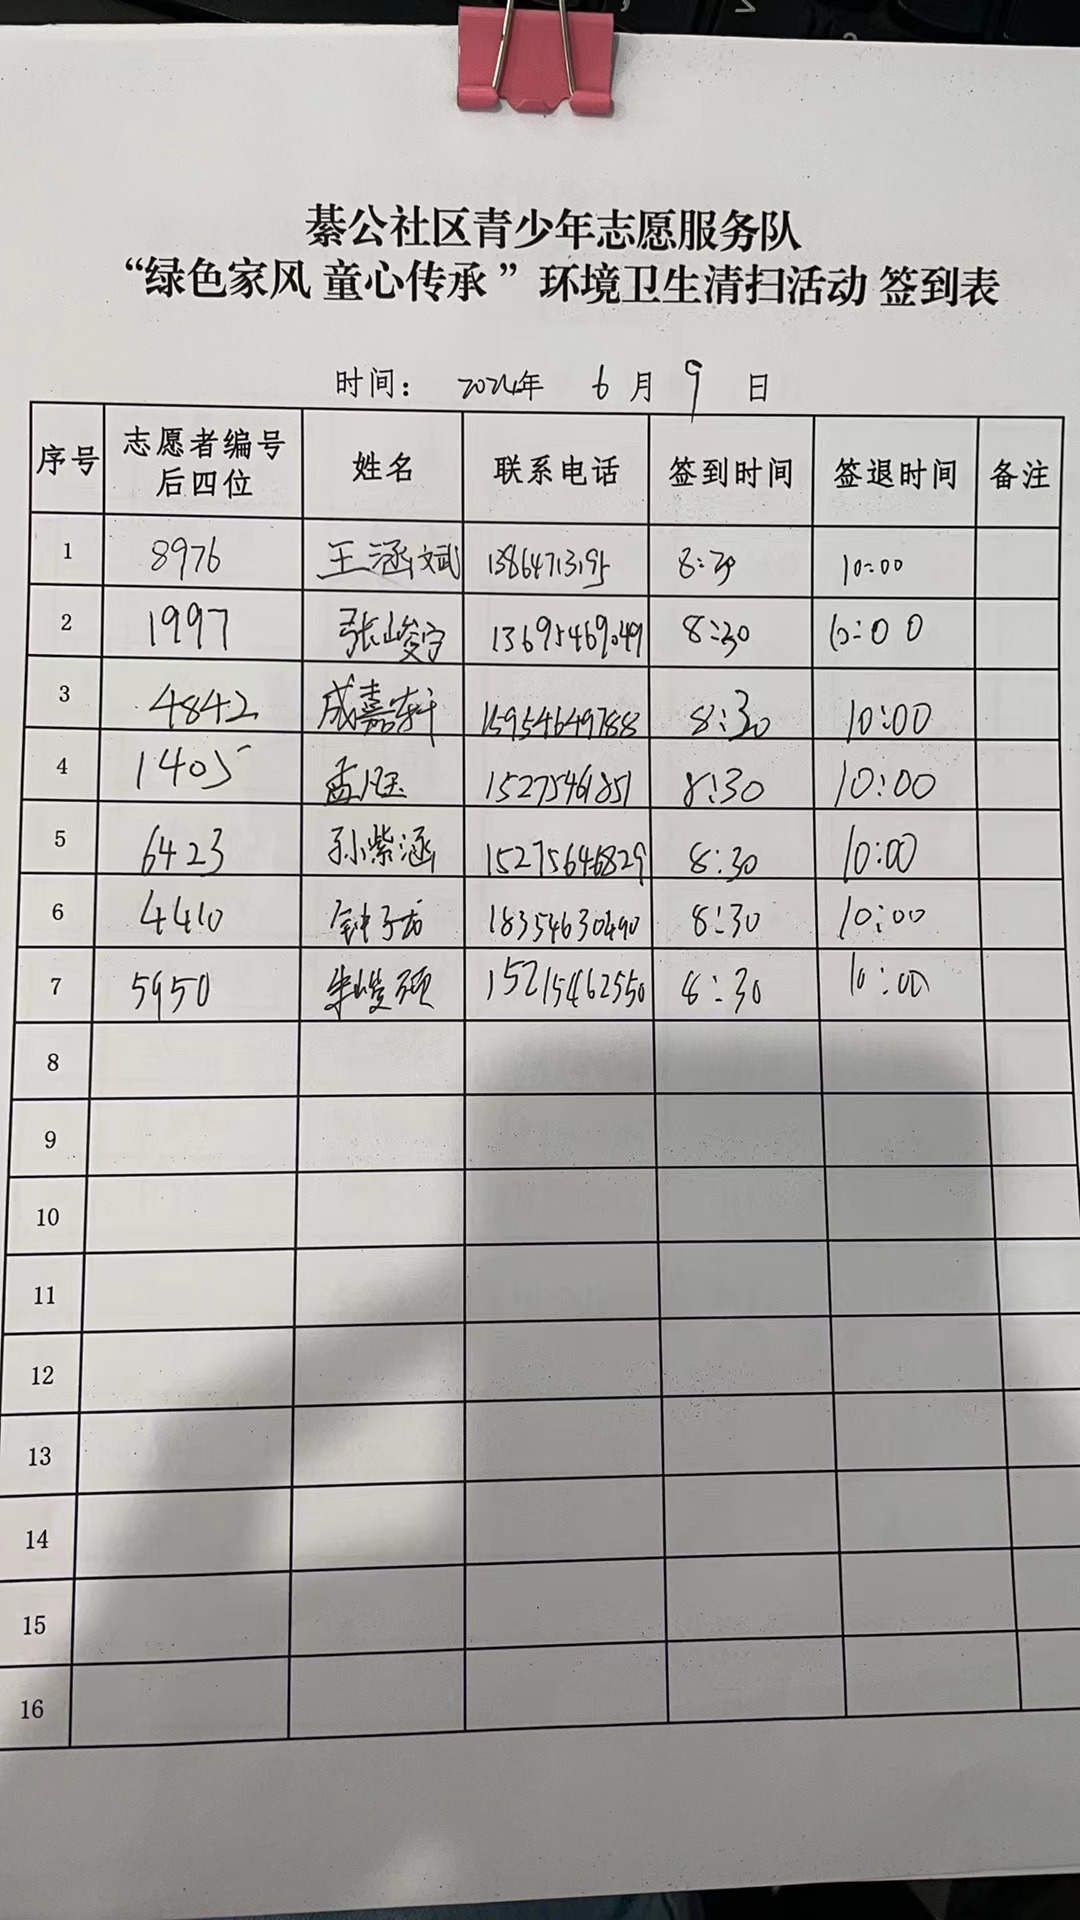 綦公社区青少年志愿服务队
“绿色家风 童心传承 ”环境卫生清扫活动 签到表
时间： 2024年 6 月 9 日
序号 志愿者编号后四位 姓名 联系电话 签到时间 签退时间 备注
1 8976 王涵斌 8:30 10:00
2 1997 张峻宁 13695469049 8:30 10:00
3 4842 成嘉轩 15954649788 8:30 10:00
4 1405 孟凡玉 15275461851 8:30 10:00
5 6423 孙紫涵 15275646829 8:30 10:00
6 4410 钟子 18354630490 8:30 10:00
7 5950 朱峻硕 15215462550 8:30 10:00
8
9
10
11
12
13
14
15
16